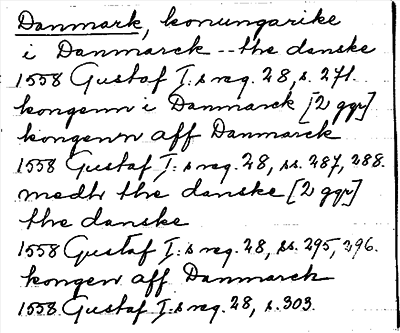 Danmark, konungarike
i Danmarck -- the danske
1558 Gustaf I:s reg. 28, s. 271.
kongenn i Danmarck [2 ggr]
kongenn aff Danmarck
1558 Gustaf I:s reg. 28, ss. 287, 288.
medh the danske [2 ggr]
the danske
1558 Gustaf I:s reg. 28, ss. 295, 296.
kongen aff Danmarck
1558 Gustaf I:s reg. 28, s. 303.